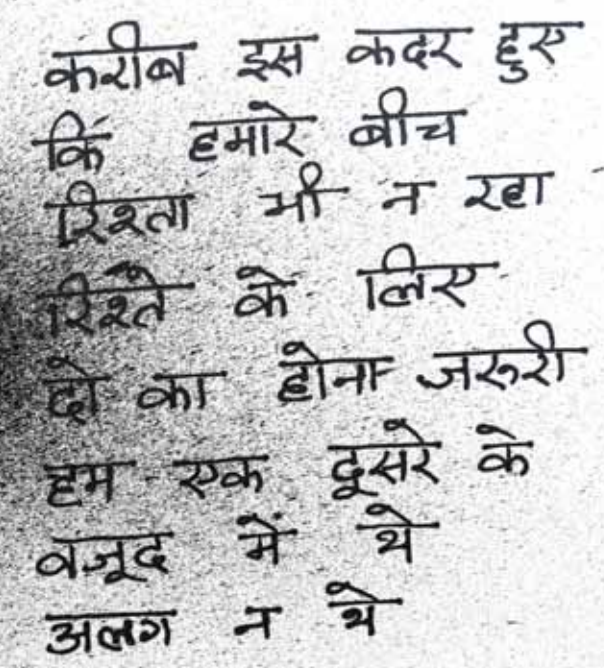 करीब इस कदर हुए
कि हमारे बीच
रिश्ता भी न रहा
रिश्ते के लिए
दो का होना जरुरी
हम एक दूसरे के
वजूद में थे
अलग न थे